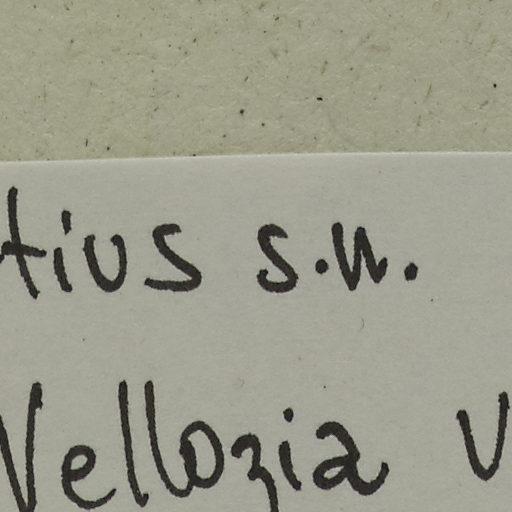 tius s.n.
Vellozia v